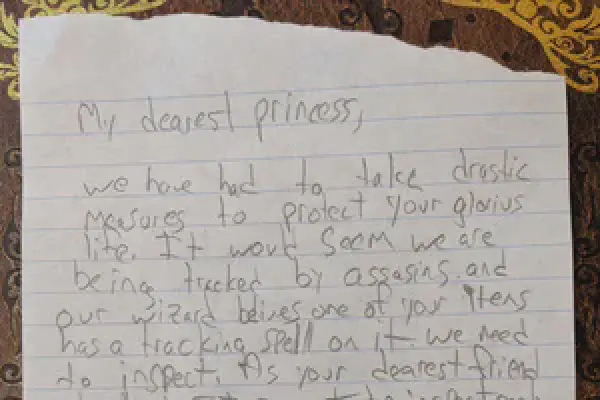 My dearest princess,
we have had to take drastic
measures to protect your glorius
life. It would seem we are
being tracked by assasins and
our wizard belives one of your items
has a tracking spell on it we need
to inspect. As your dearest friend